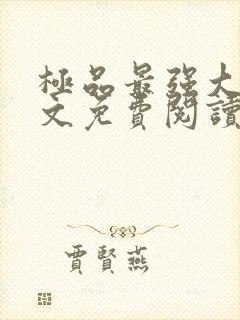 極品最強大
文免費閱讀
賈賢燕